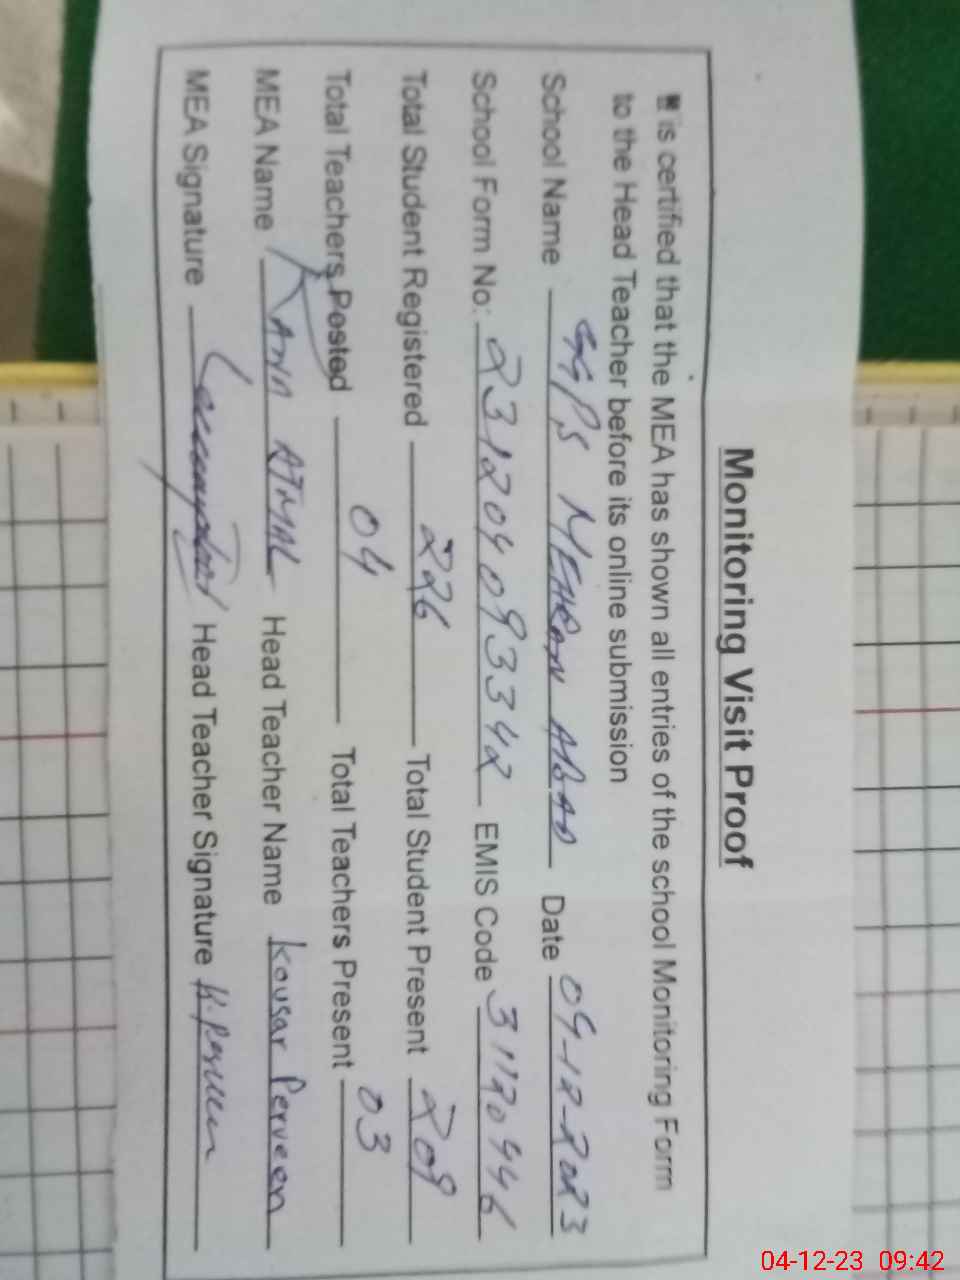 Monitoring Visit Proof
is certified that the MEA has shown all entries of the school Monitoring Form
to the Head Teacher before its online submission
School Name GGPS MEHRAN ABAD Date 04-12-2023
School Form No: 231204093342 EMIS Code 31120446
Total Student Registered 226 Total Student Present 209
Total Teachers Posted 04 Total Teachers Present 03
MEA Name RANA AJMAL Head Teacher Name Kousar Perveen
MEA Signature Head Teacher Signature K.Perveen
04-12-23 09:42